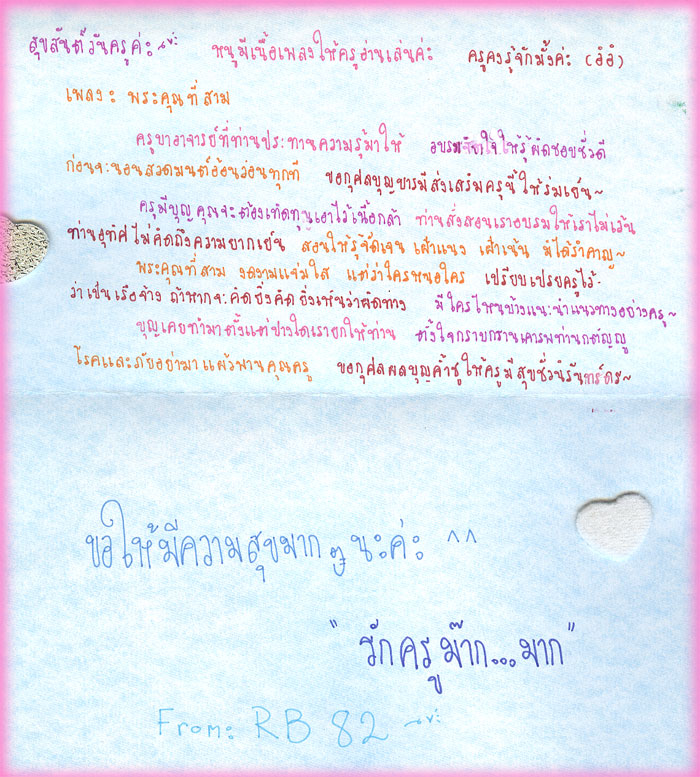 สุขสันต์วันครูค่ะ หนูมีเนื้อเพลงให้ครูอ่านเล่นค่ะ ครูคงรู้จักมั้งค่ะ (อิอิ)
เพลง: พระคุณที่สาม
ครูบาอาจารย์ที่ท่านประทานความรู้มาให้ อบรมจิตใจให้รู้ผิดชอบชั่วดี
ก่อนจะนอนสวดมนต์อ้อนวอนทุกที ขอกุศลบุญบารมีส่งเสริมครูนี้ให้ร่มเย็น~
ครูมีบุญคุณจะต้องเทิดทูนเอาไว้เหนือเกล้า ท่านสั่งสอนเราอบรมให้เราไม่เว้น
ท่านอุทิศไม่คิดถึงความยากเย็น สอนให้รู้จัดเจน เฝ้าแนะ เฝ้าเน้น มิได้รำคาญ~
พระคุณที่สาม งดงามแจ่มใส แต่ว่าใครหนอใคร เปรียบเปรยครูไว้
ว่าเป็นเรือจ้าง ถ้าหากจะคิดยิ่งคิดยิ่งเห็นว่าผิดทาง มีใครไหนบ้างแนะนำแนวทางอย่างครู~
บุญเคยทำมาตั้งแต่ปางใดเรายกให้ท่าน ตั้งใจกราบกรานเคารพท่านกตัญญู
โรคและภัยอย่ามาแผ้วพานคุณครู ขอกุศลผลบุญค้ำชูให้ครูมีสุขชั่วนิรันทร์ดร~
ขอให้มีความสุขมาก ๆ นะค่ะ ^^
"รักครูม๊าก...มาก"
From: RB 82